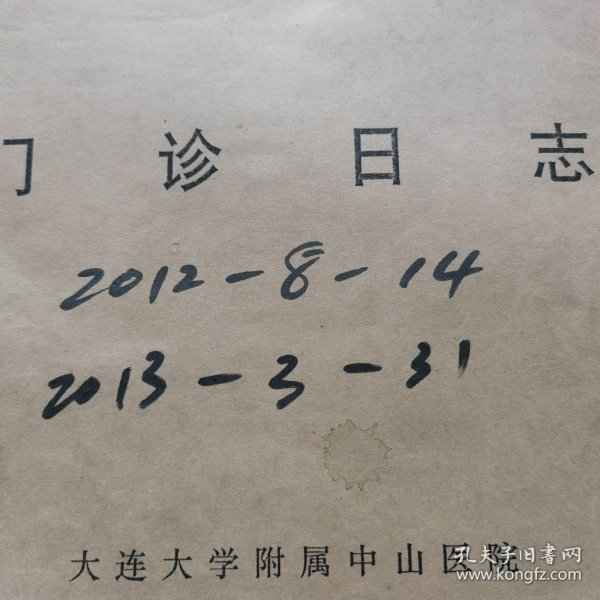 门诊日志
2012-8-14
2013-3-31
大连大学附属中山医院
孔夫子旧書网
www.kongfz.com